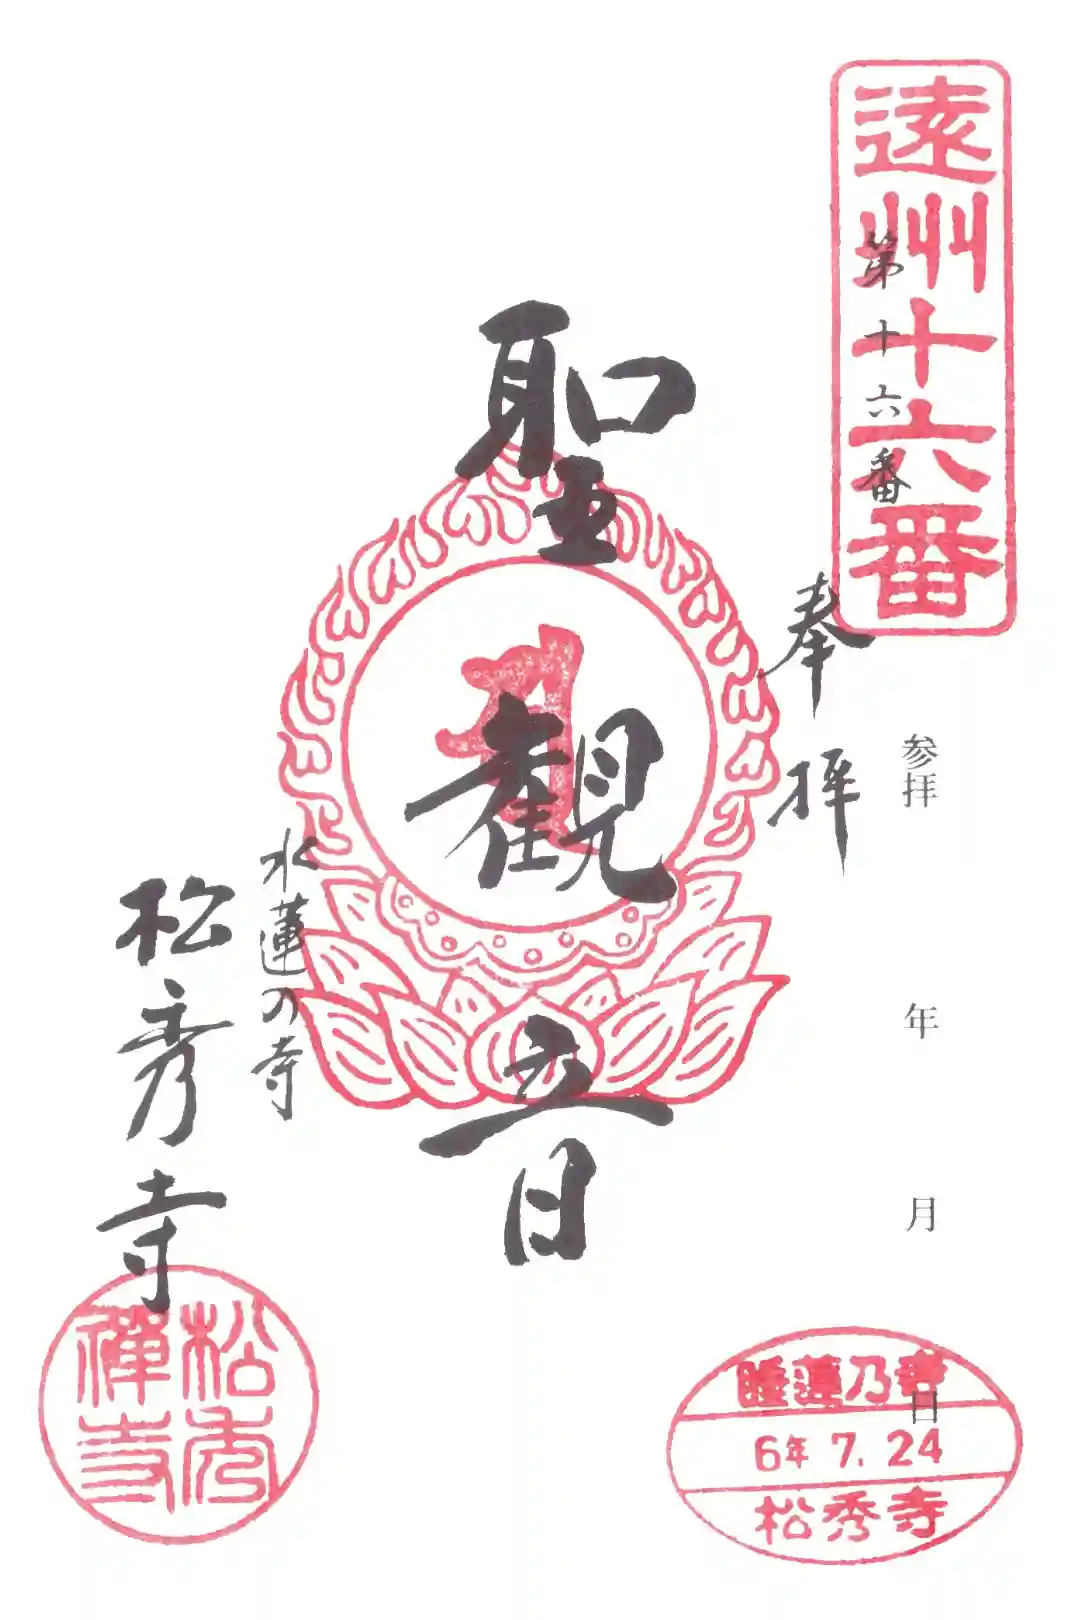 遠州十六番
第十六番
参拝 年 月 日
奉拝
聖観音
水蓮の寺
松秀寺
松秀禅寺
睡蓮乃寺
6年 7.24
松秀寺